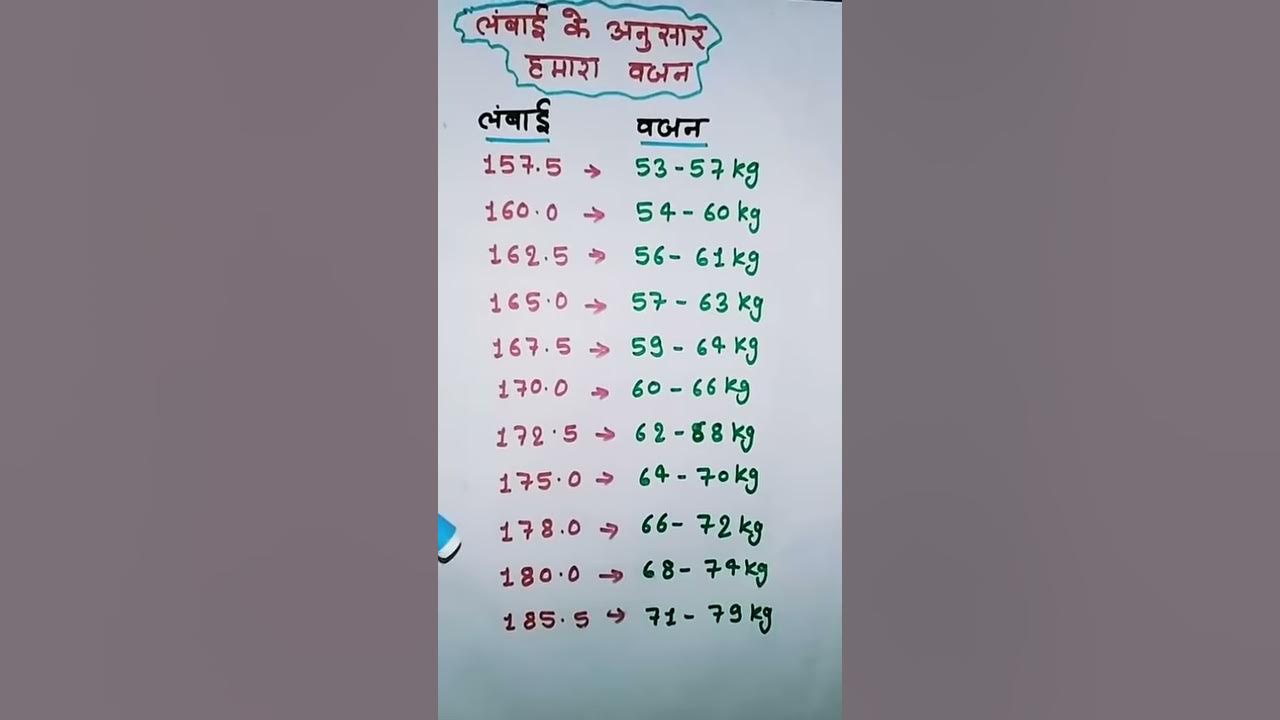 लंबाई के अनुसार
हमारा वजन
लंबाई वजन
157.5 → 53-57 kg
160.0 → 54-60 kg
162.5 → 56-61 kg
165.0 → 57-63 kg
167.5 → 59-64 kg
170.0 → 60-66 kg
172.5 → 62-88 kg
175.0 → 64-70 kg
178.0 → 66-72 kg
180.0 → 68-74 kg
185.5 → 71-79 kg